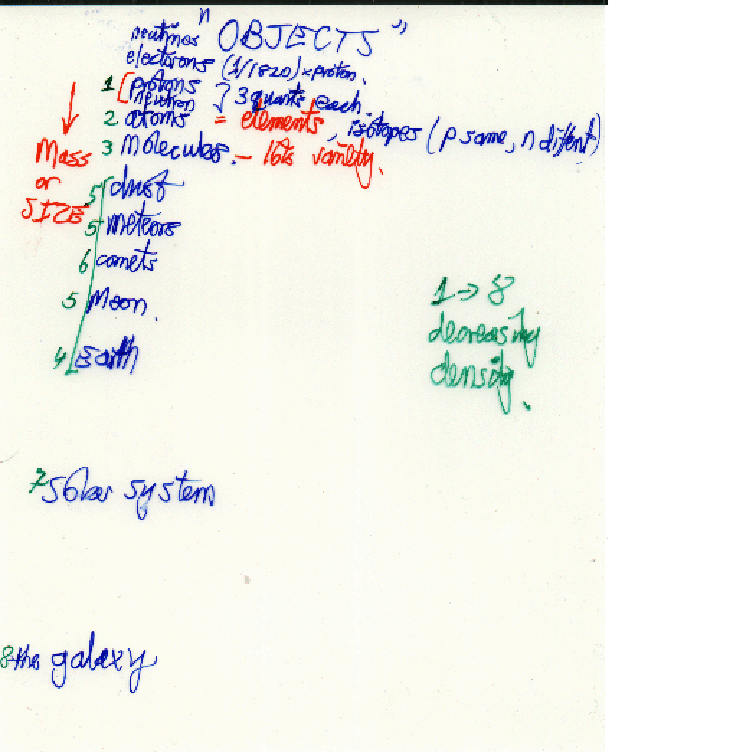 "OBJECTS"
neutrinos
electrons (1/1820) x proton.
1 [protons
neutron } 3 quarks each.
2 atoms = elements, isotopes (p same, n different)
3 Molecules. - lots variety.
Mass
or
SIZE
5 dust
5 meteors
6 comets
5 Moon.
4 Earth
1 → 8
decreasing
density.
7 Solar system
8 the galaxy